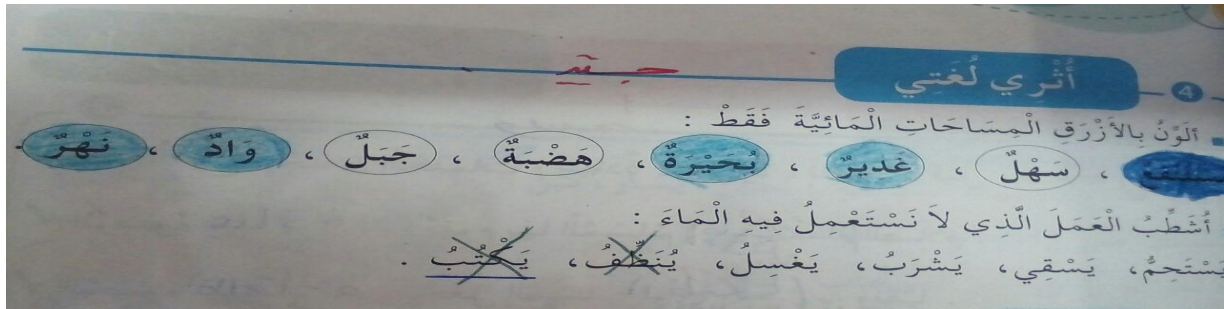 4 أُثْرِي لُغَتِي
أُلَوِّنُ بِالأَزْرَقِ الْمِسَاحَاتِ الْمَائِيَّةَ فَقَطْ :
، سَهْلٌ ، غَدِيرٌ ، بُحَيْرَةٌ ، هَضْبَةٌ ، جَبَلٌ ، وَادٌ ، نَهْرٌ .
أُشَطِّبُ الْعَمَلَ الَّذِي لاَ نَسْتَعْمِلُ فِيهِ الْمَاءَ :
يَسْتَحِمُّ، يَسْقِي، يَشْرَبُ، يَغْسِلُ، يُنَظِّفُ، يَكْتُبُ .